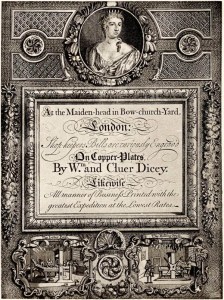 At the Maiden-head in Bow-church-Yard.
London:
Shop-keepers Bills are curiously Engrav'd
On Copper-Plates
By Wm. and Cluer Dicey.
Likewise
All manner of Business Printed with the
greatest Expedition at the Lowest Rates.